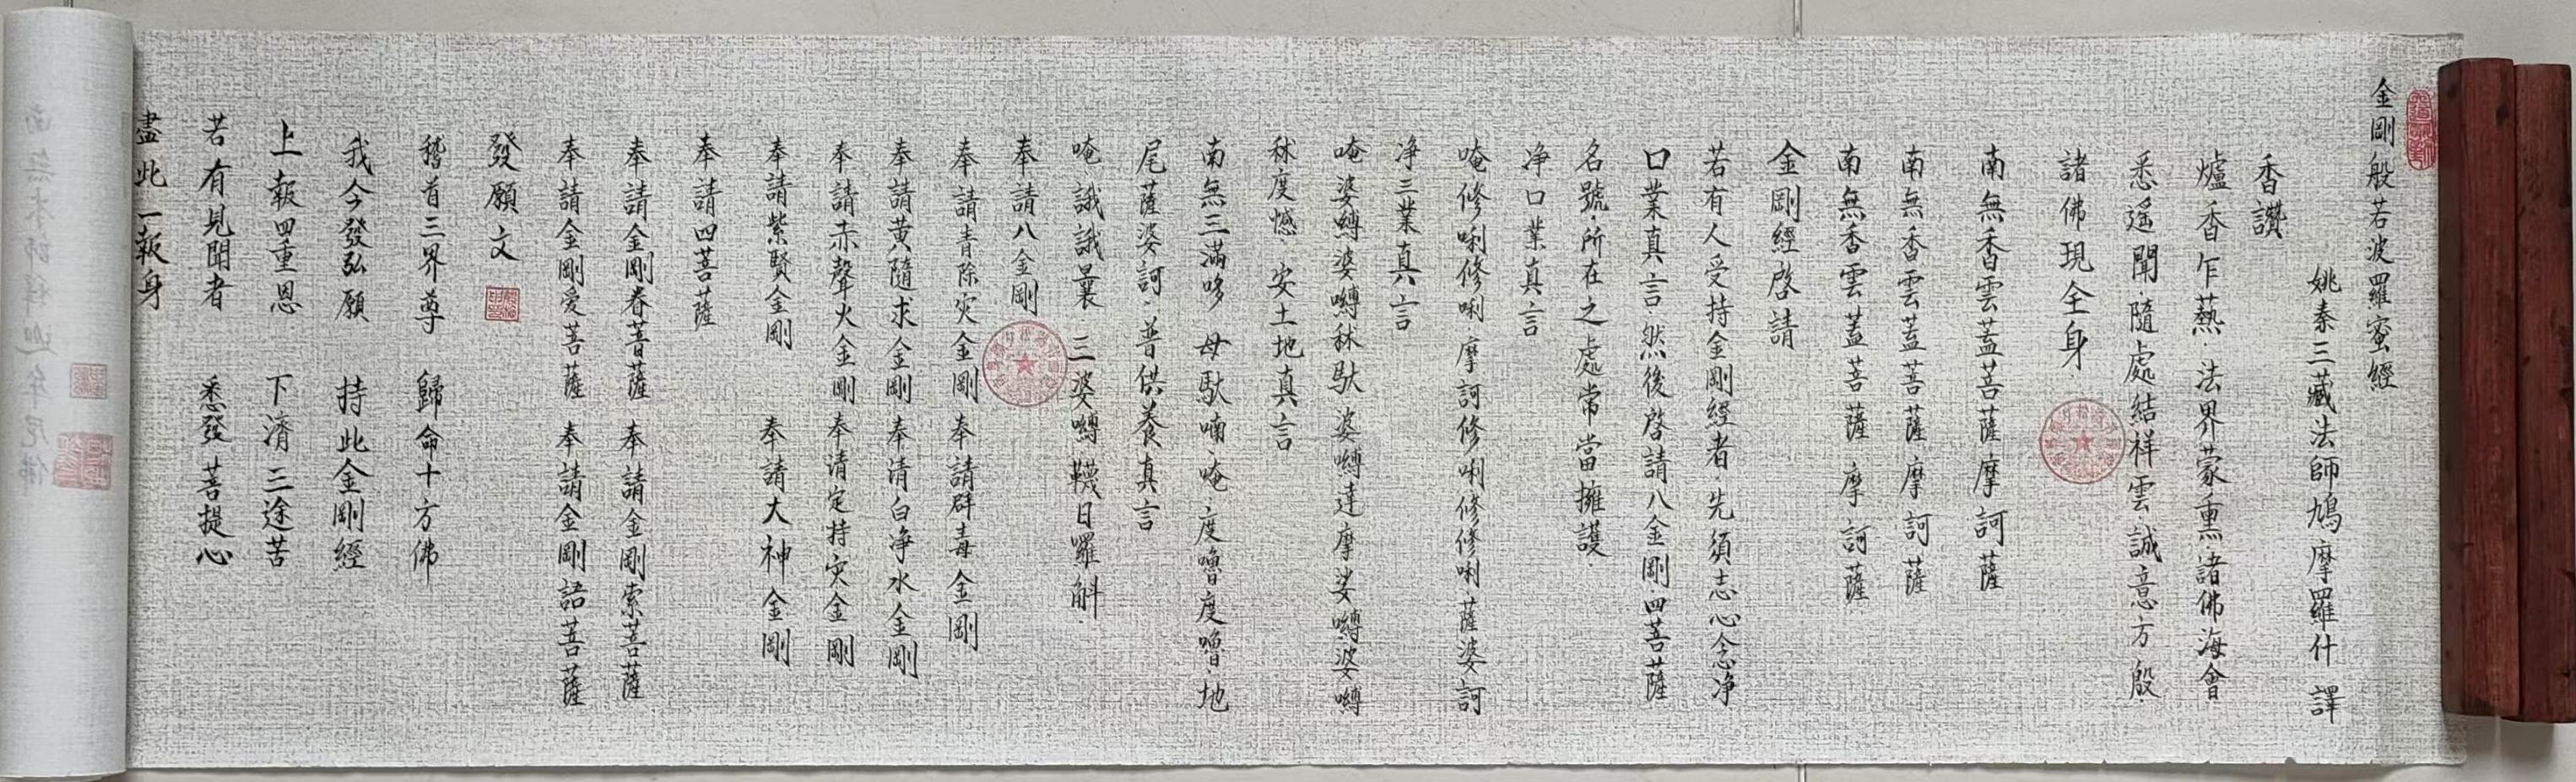 金剛般若波羅蜜經
姚秦三藏法師鳩摩羅什 譯
香讚
爐香乍爇·法界蒙熏諸佛海會
悉遥聞·隨處結祥雲誠意方殷·
諸佛現全身
南無香雲蓋菩薩摩訶薩
南無香雲蓋菩薩摩訶薩
南無香雲蓋菩薩 摩訶薩
金剛經啓請
若有人受持金剛經者·先須志心念净
口業真言·然後啓請八金剛四菩薩
名號·所在之處常當擁護·
净口業真言
唵修唎修唎·摩訶修唎修修唎·薩婆訶
净三業真言
唵婆嚩婆嚩秫馱婆嚩達摩娑嚩·婆嚩
秫度憾·安土地真言
南無三滿哆 母馱喃·唵·度嚕度嚕·地
尾薩婆訶·普供養真言
唵·誐誐曩 三婆嚩韈日羅斛·
奉請八金剛
奉請青除灾金剛 奉請辟毒金剛
奉請黄隨求金剛 奉清白净水金剛
奉請赤聲火金剛 奉请定持灾金剛
奉請紫賢金剛 奉請大神金剛
奉請四菩薩
奉請金剛眷菩薩 奉請金剛索菩薩
奉請金剛愛菩薩 奉請金剛語菩薩
發願文
稽首三界尊 歸命十方佛
我今發弘願 持此金剛經
上報四重恩 下濟三途苦
若有見聞者 悉發菩提心
盡此一報身
南無本師釋迦牟尼佛